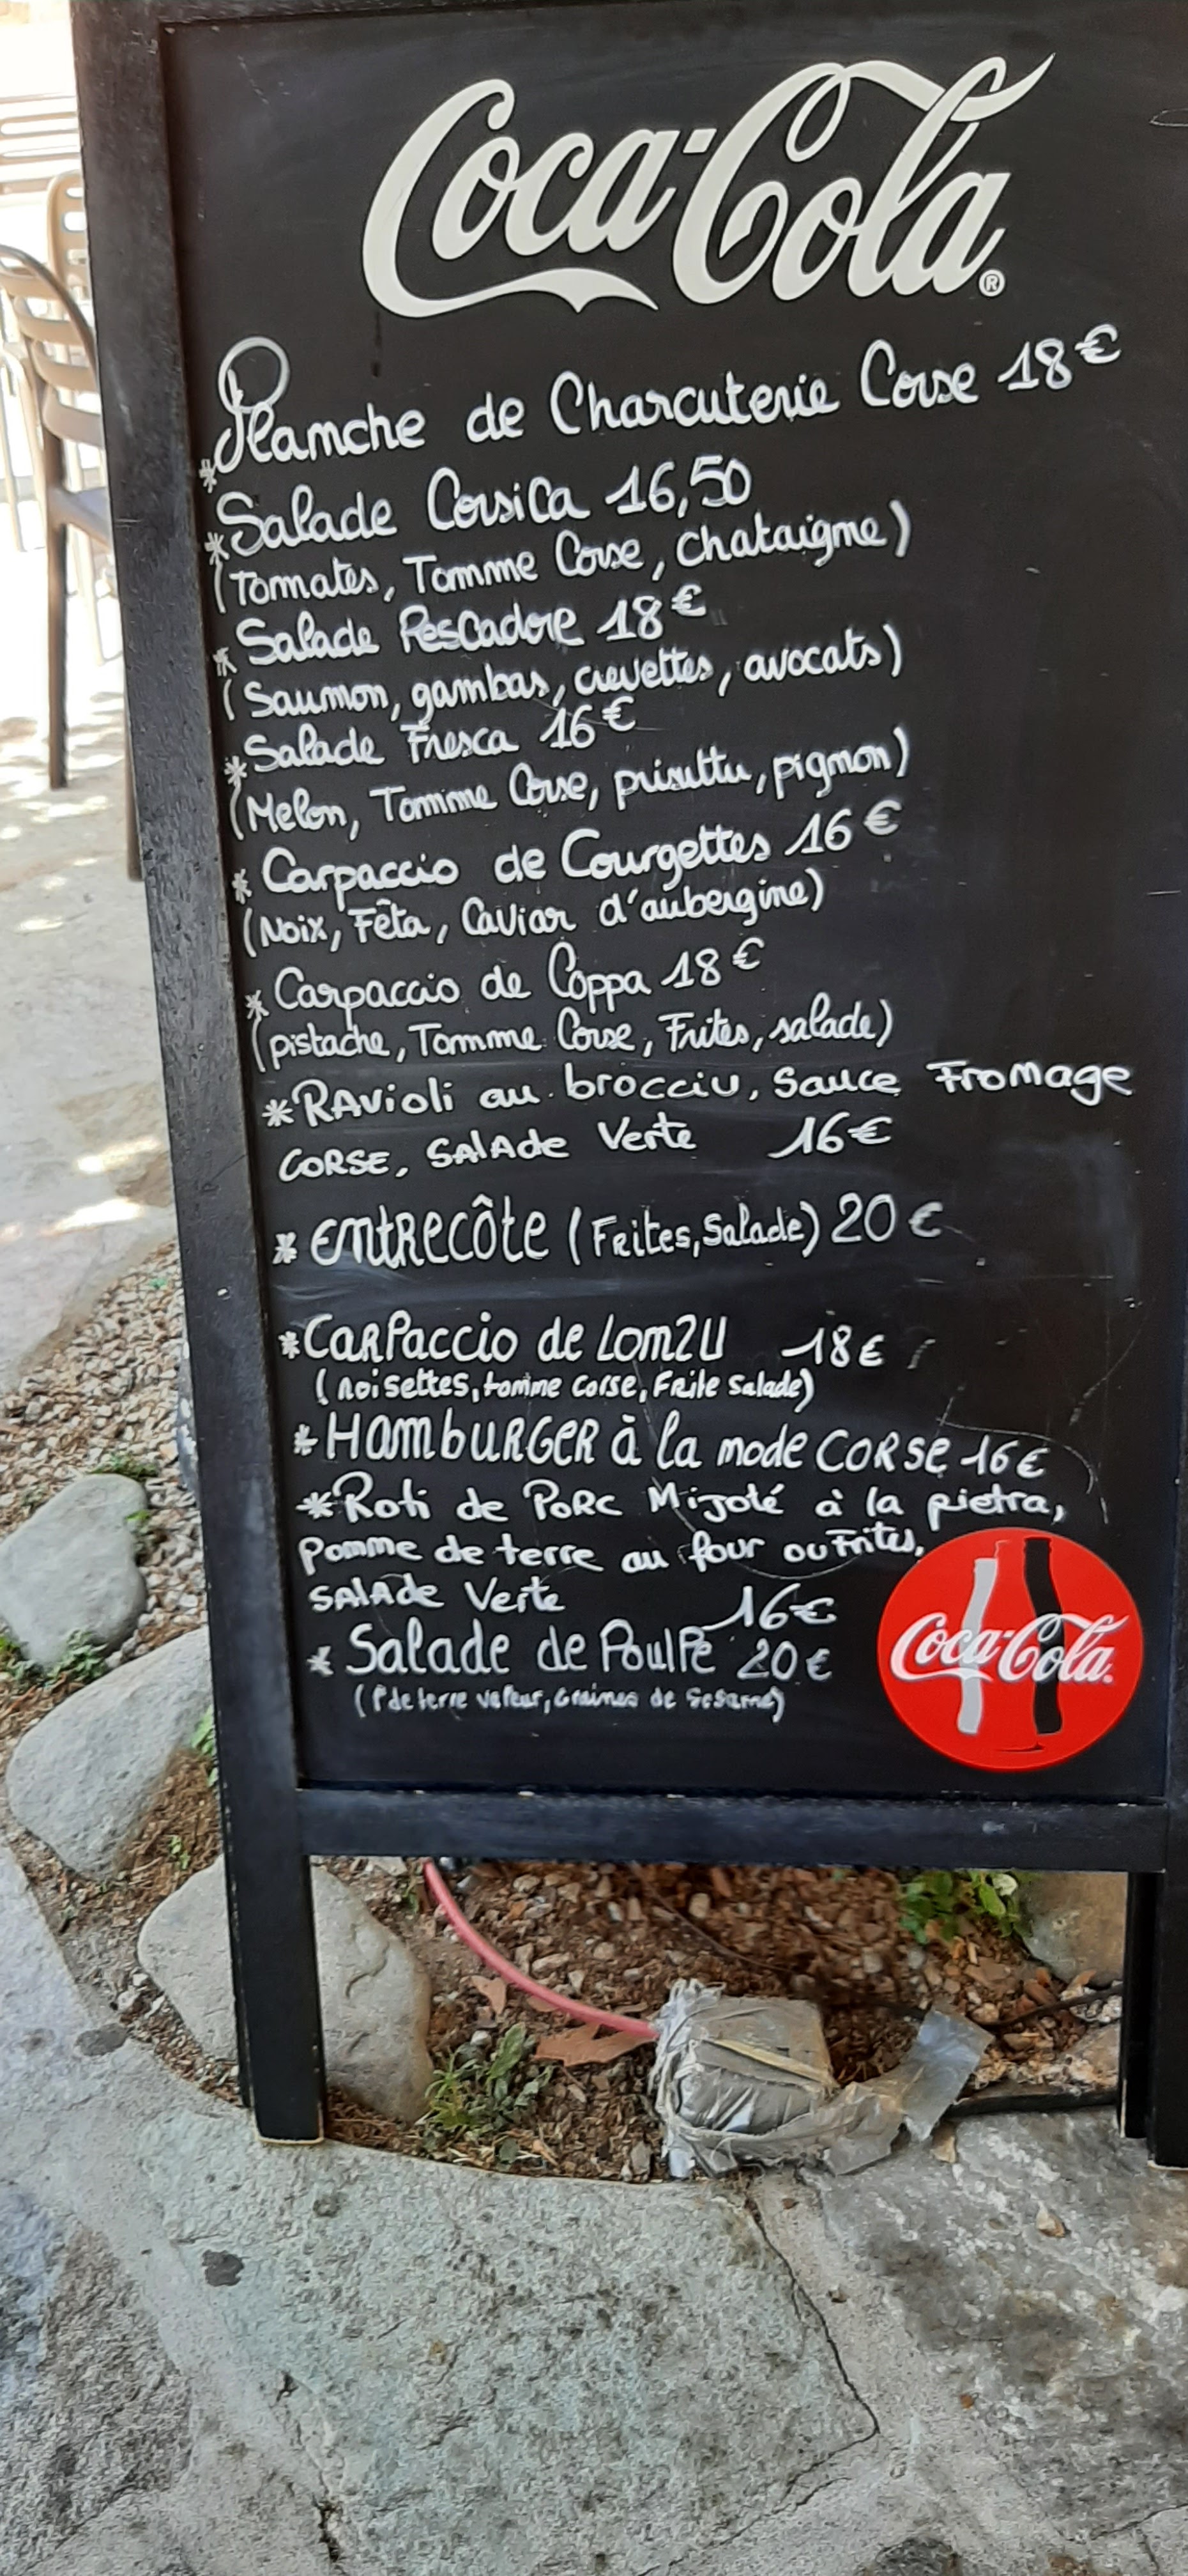 Coca-Cola®
*Planche de Charcuterie Corse 18€
*Salade Corsica 16,50
(Tomates, Tomme Corse, chataigne)
*Salade Pescadore 18€
(Saumon, gambas, crevettes, avocats)
*Salade Fresca 16€
(Melon, Tomme Corse, prisuttu, pignon)
*Carpaccio de Courgettes 16€
(Noix, Fêta, Caviar d'aubergine)
*Carpaccio de Coppa 18€
(pistache, Tomme Corse, Frites, salade)
*RAvioli au brocciu, Sauce Fromage
CORSE, SALAde Verte 16€
*entrecôte (Frites, Salade) 20€
*Carpaccio de Lomzu 18€
(noisettes, tomme corse, Frite Salade)
*HamburGER à la mode CORSE 16€
*Roti de Porc Mijoté à la pietra,
Pomme de terre au four ou Frites,
SALAde Verte 16€
*Salade de Poulpe 20€
(P de terre vapeur, Graines de Sesame)
Coca-Cola